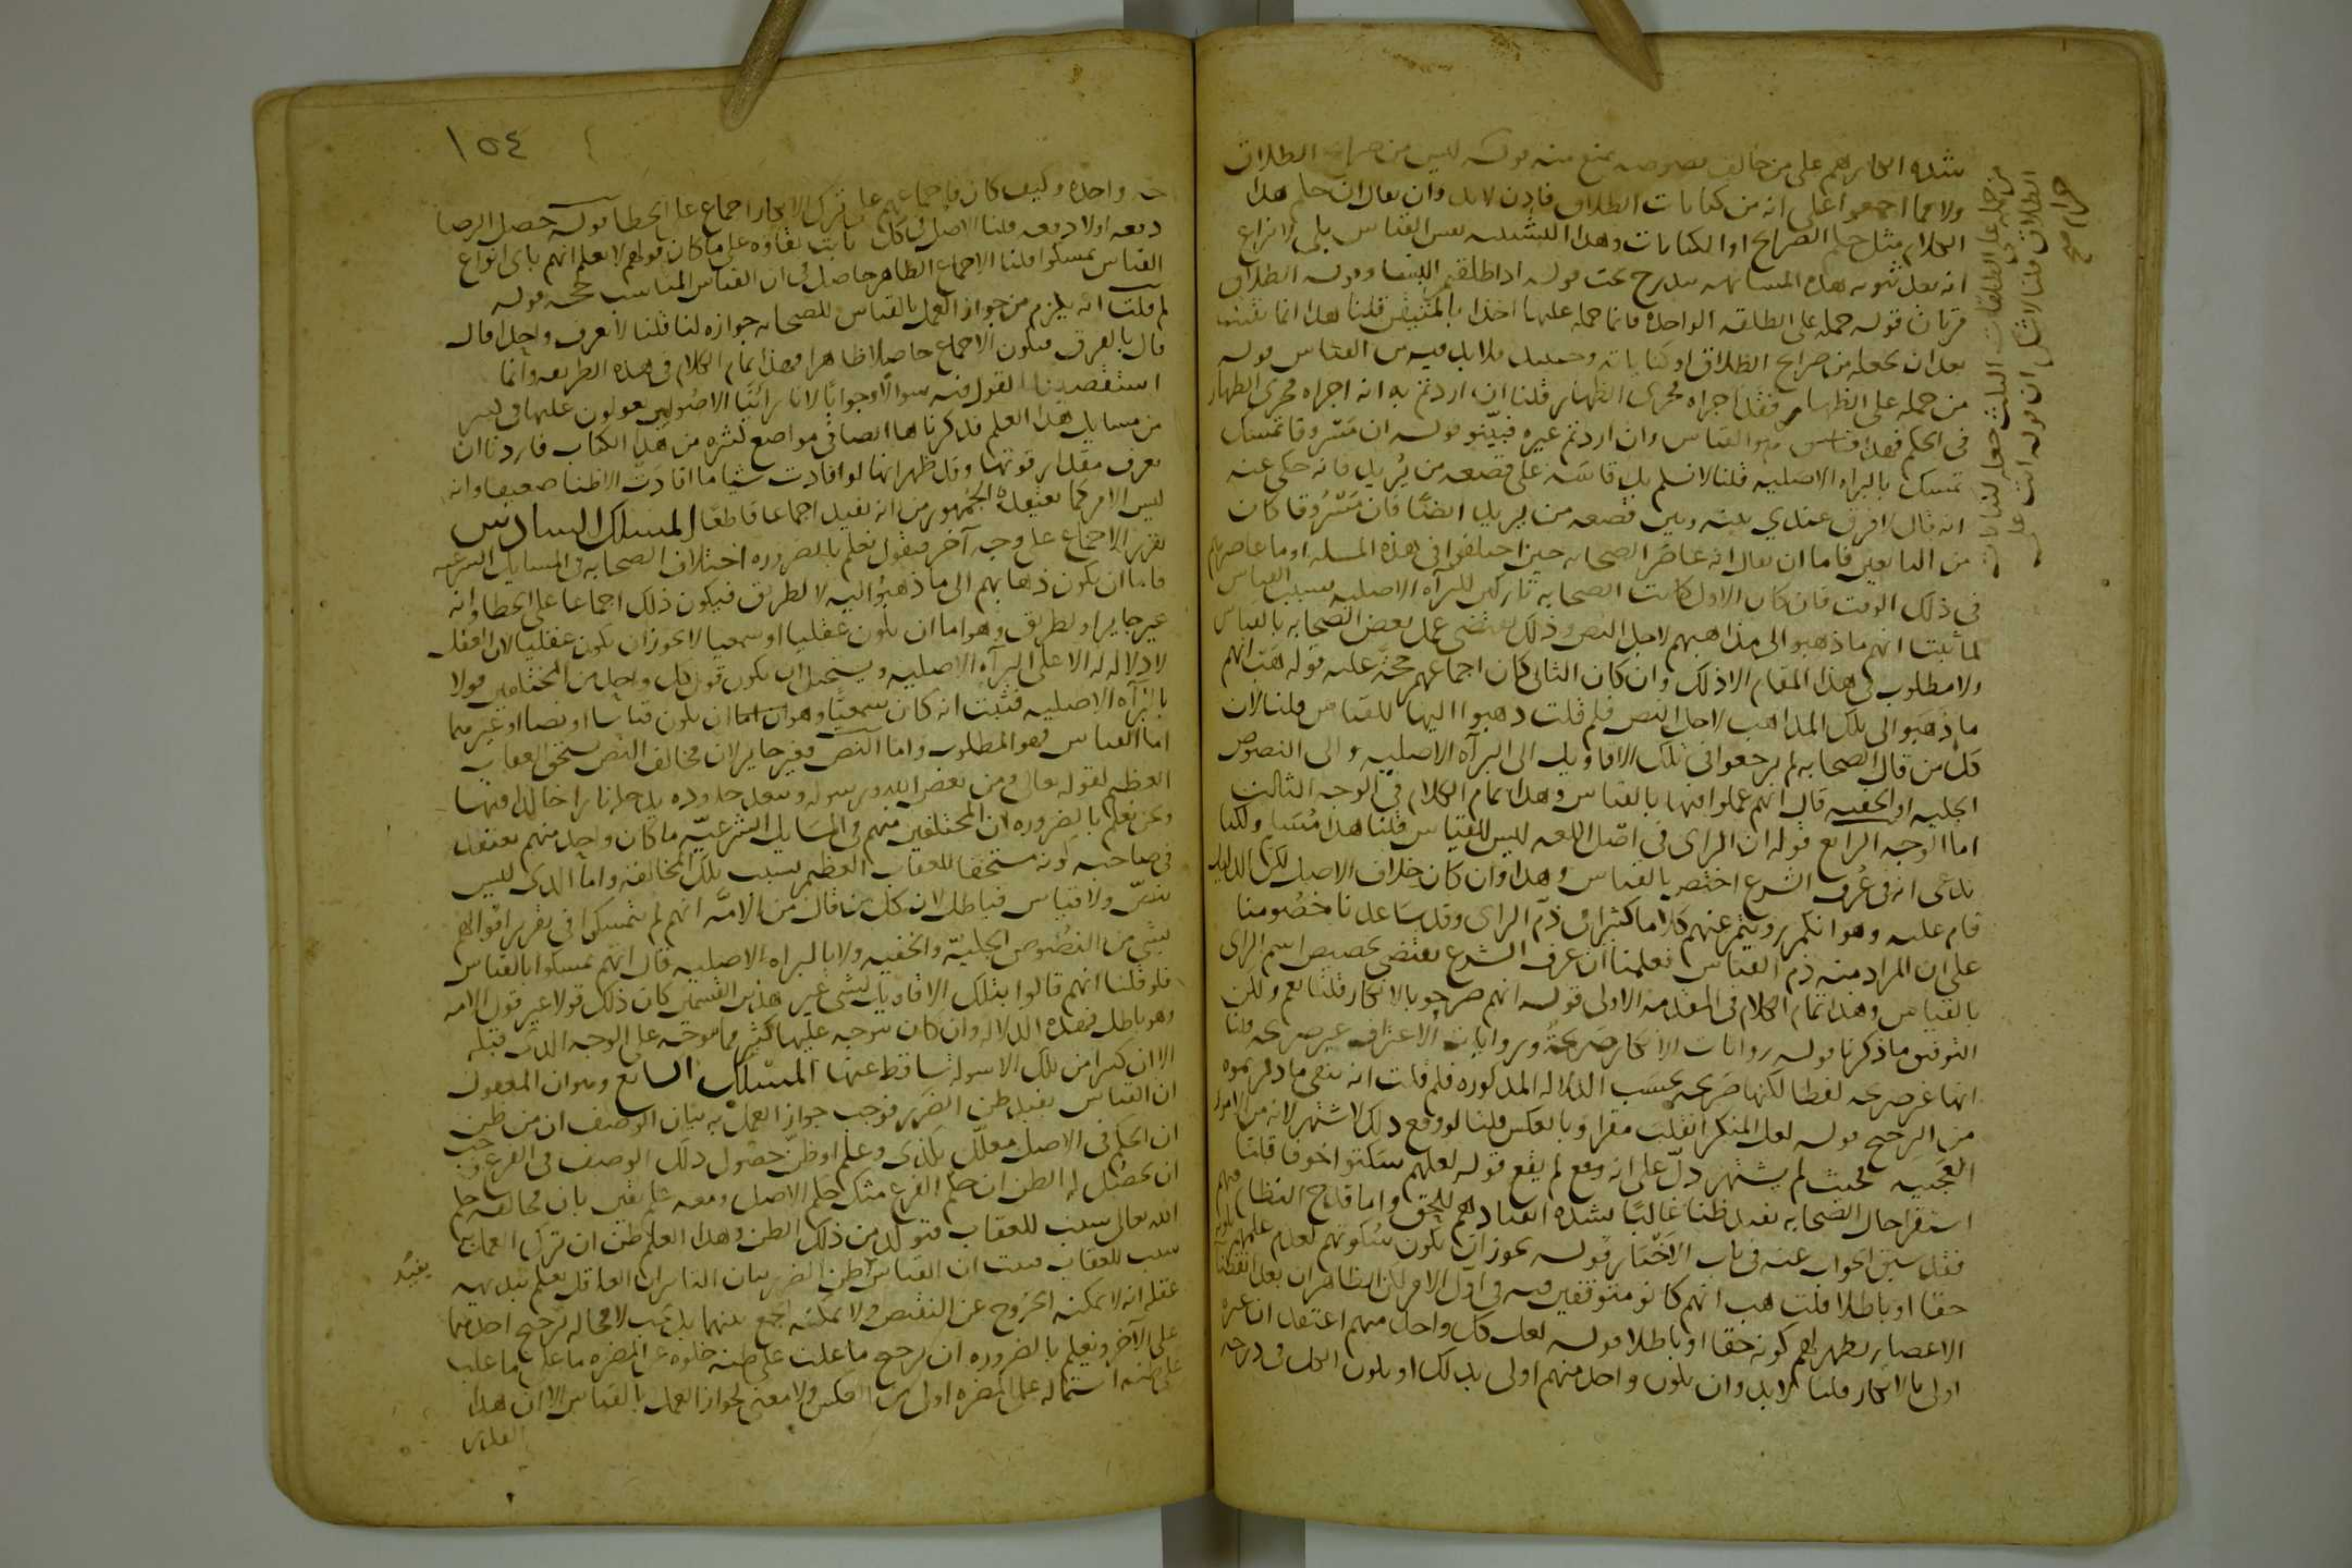 بشدة انكارهم على من خالف نصوصه يمنع منه قوله ليس من صرايح الطلاق
ولا مما اجمعوا على انه من كنايات الطلاق فاذن لا بد وان يقال ان حكم هذا
الكلام مثل حكم الصريح او الكنايات وهذا التشبيه نفس القياس بلى لا نزاع
انه بعد ثبوت هذه المشابهه يندرج تحت قوله اذا طلقتم النسا وقوله الطلاق
مرتان قوله حمله على الطلقه الواحده فانما حمله عليها اخذا بالمتيقن قلنا هذا انما
بعد ان يجعله من صرايح الطلاق او كناياته وحينيذ فلا بد فيه من القياس قوله
من حمله على الظهار فقد اجراه مجرى الظهار قلنا ان اردتم به انه اجراه مجرى الظهار
في الحكم فهذا قياس وان اردتم غيره فبينوه قوله ان مسروقا تمسك
تمسك بالبراه الاصليه قلنا لا نسلم بل قاسه على قصعه من ثريد فانه حكى عنه
انه قال لا فرق عندي بينه وبين قصعه من ثريد ايضا فان مسروقا كان
من التابعين فاما ان يقال انه عاصر الصحابه حين اختلفوا في هذه المسله او ما عاصرهم
في ذلك الوقت فان كان الاول كانت الصحابه تاركين للبرآه الاصليه بسبب القياس
لما ثبت انهم ما ذهبوا الى مذاهبهم لاجل النص وذلك يقتضي عمل بعض الصحابه بالقياس
ولا مطلوب في هذا المقام الا ذلك وان كان الثاني كان اجماعهم حجة عليه قوله هب انهم
ما ذهبوا الى تلك المذاهب لاجل النص فلم قلت ذهبوا اليها للقياس قلنا لان
كل من قال الصحابه لم يرجعوا في تلك الاقاويل الى البرآه الاصليه والى النصوص
الجليه او الخفيه قال انهم عملوا فيها بالقياس وهذا تمام الكلام في الوجه الثالث
اما الوجه الرابع قوله ان الراى في اصل اللغه ليس للقياس قلنا هذا مسلم ولكنا
ندعى انه في عرف الشرع اختص بالقياس وهذا وان كان خلاف الاصل لكن الدليل
قام عليه وهو انكم رويتم عنهم كلاما كثيرا في ذم الراى وقد ساعدنا خصومنا
على ان المراد منه ذم القياس فعلمنا ان عرف الشرع يقتضى تخصيص اسم الراى
بالقياس وهذا تمام الكلام في المقدمه الاولى قوله انهم صرحوا بالانكار قلنا نعم ولكن
التوفيق ما ذكرنا قوله روايات الانكار صريحة وروايات الاعتراف غير صريحه قلنا
انها غير صريحه لفظا لكنها صريحه بحسب الدلاله المذكوره فلم قلت انه بقى ما ذكرتموه
من الترجيح قوله لعل المنكر انقلب مقرا وبالعكس قلنا لو وقع ذلك لاشتهر لانه من الامور
العجيبه فحيث لم يشتهر دل على انه لم يقع قوله لعلهم سكتوا خوفا قلنا
استقرا حال الصحابه يفيد ظنا غالبا بشده انقيادهم للحق واما قدح النظام فيهم
فقد سبق الجواب عنه في باب الاخبار قوله يجوز ان يكون سكوتهم لعدم علمهم بكونه
حقا او باطلا قلت هب انهم كانو متوقفين فيه في اول الامر لكن الظاهر ان بعد انقضا
الاعصار يظهر لهم كونه حقا او باطلا قوله لعل كل واحد منهم اعتقد ان غيره
اولى بالانكار قلنا لا بد وان يكون واحد منهم اولى بذلك او يكون الكل في درجه
من حمله على الطلقات الثلث جعله كنايا
الطلاق قلنا لا شك ان قوله انت
حرام صح
١٥٤
واحده وكيف كان فاجماعهم على ترك الانكار اجماع على الخطا قوله حصل الرضا
دفعه اولا دفعه قلنا الاصل في كل ثابت بقاؤه على ما كان قولهم لا نعلم انهم باى انواع
القياس تمسكوا قلنا الاجماع الظاهر حاصل في ان القياس المناسب حجه قوله
لم قلت انه يلزم من جواز العمل بالقياس للصحابه جوازه لنا قلنا لا نعرف واحدا قال
قال بالفرق فيكون الاجماع حاصلا ظاهرا فهذا تمام الكلام في هذه الطريقه وانما
استقصينا القول فيه سوالا وجوابا لانا راينا الاصوليين يعولون عليها في كثير
من مسايل هذا العلم قد ذكرناها ايضا في مواضع كثيره من هذا الكتاب فاردنا ان
نعرف مقدار قوتها وقد ظهر انها لو افادت شيا ما افادت الا ظنا ضعيفا وانه
ليس الامر كما يعتقده الجمهور من انه يفيد اجماعا قاطعا المسلك السادس
تقرير الاجماع على وجه آخر فنقول نعلم بالضروره اختلاف الصحابه في المسايل الشرعيه
فاما ان يكون ذهابهم الى ما ذهبوا اليه لا لطريق فيكون ذلك اجماعا على الخطا وانه
غير جايز او لطريق وهو اما ان يكون عقليا او سمعيا لا يجوز ان يكون عقليا لان العقل
لا دلاله له الا على البرآه الاصليه ويستحيل ان يكون قول كل واحد من المختلفين قولا
بالبرآه الاصليه فثبت انه كان سمعيا وهو اما ان يكون قياسا او نصا او غيرهما
اما القياس فهو المطلوب واما النص فغير جايز لان مخالف النص يستحق العقاب
العظيم لقوله تعالى ومن يعص الله ورسوله ويتعد حدوده يدخله نارا خالدا فيها
ونحن نعلم بالضروره ان المختلفين منهم في المسايل الشرعيه ما كان واحد منهم يعتقد
في صاحبه كونه مستحقا للعقاب العظيم بسبب تلك المخالفه واما الذى ليس
بنص ولا قياس فباطل لان كل من قال من الامه انهم لم يتمسكوا في تقرير اقوالهم
بشي من النصوص الجليه والخفيه ولا بالبراه الاصليه قال انهم تمسكوا بالقياس
فلو قلنا انهم قالوا بتلك الاقاويل لشى غير هذين القسمين كان ذلك قولا غير قول الامه
وهو باطل فهذه الدلاله وان كان يتوجه عليها كثير مما يتوجه على الوجه الذى قبله
الا ان كثيرا من تلك الاسوله تساقط عنها المسلك السابع وهو ان المعقول
ان القياس يفيد ظن الضرر فوجب جواز العمل به بيان الوصف ان من ظن
ان الحكم في الاصل معلل بكذى وعلم او ظن حصول ذلك الوصف في الفرع وجب
ان يحصل له الظن ان حكم الفرع مثل حكم الاصل ومعه علم يقين بان مخالفه حكم
الله تعالى سبب للعقاب فتولد من ذلك الظن وهذا العلم ظن ان ترك العمل به
سبب للعقاب فثبت ان القياس ظن الضرر بيان التاثير ان العاقل يعلم ببديهه
يفيد
عقله انه لا يمكنه الخروج عن النقيضين ولا يمكنه الجمع بينهما بل يجب لا محاله ترجيح احدهما
على الآخر ونعلم بالضروره ان ترجيح ما غلب على ظنه خلوه عن المضره على ما غلب
على ظنه اشتماله على المضره اولى من العكس ولا معنى لجواز العمل بالقياس الا ان هذا
القدر